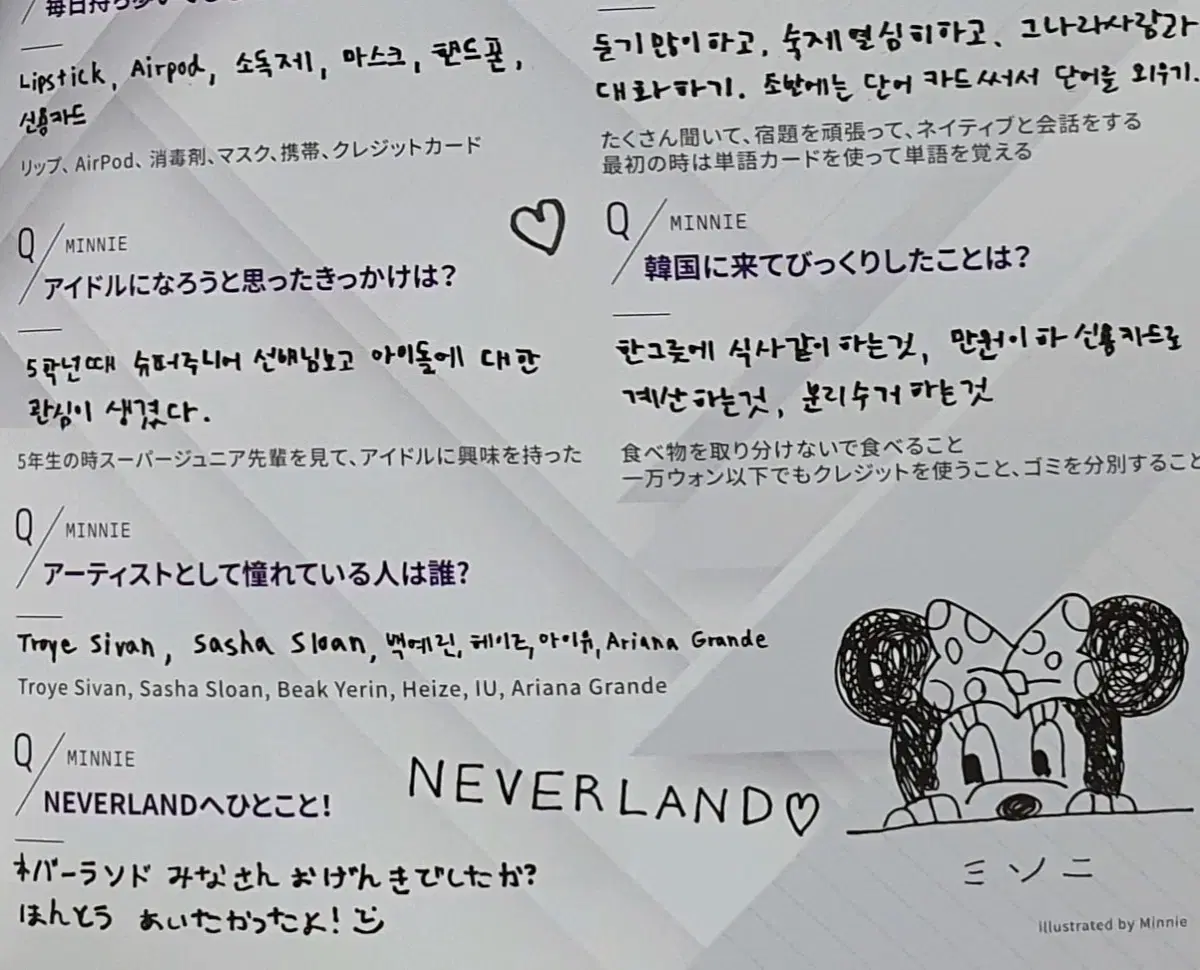 Lipstick, Airpod, 소독제, 마스크, 핸드폰,
신용카드
リップ、AirPod、消毒剤、マスク、携帯、クレジットカード
Q/MINNIE
アイドルになろうと思ったきっかけは?
5학년때 슈퍼주니어 선배님보고 아이돌에 대한
관심이 생겼다.
5年生の時スーパージュニア先輩を見て、アイドルに興味を持った
Q/MINNIE
アーティストとして憧れている人は誰?
Troye Sivan, Sasha Sloan, 백예린, 헤이즈, 아이유, Ariana Grande
Troye Sivan, Sasha Sloan, Beak Yerin, Heize, IU, Ariana Grande
Q/MINNIE
NEVERLANDへひとこと!
NEVERLAND♡
ネバーランド みなさん おげんきでしたか?
ほんとう あいたかったよ!
듣기많이하고, 숙제열심히하고, 그나라사람과
대화하기. 초반에는 단어 카드써서 단어를 외우기.
たくさん聞いて、宿題を頑張って、ネイティブと会話をする
最初の時は単語カードを使って単語を覚える
Q/MINNIE
韓国に来てびっくりしたことは?
한그릇에 식사같이 하는것, 만원이하 신용카드로
계산하는것, 분리수거 하는것
食べ物を取り分けないで食べること
一万ウォン以下でもクレジットを使うこと、ゴミを分別すること
ミンニ
illustrated by Minnie